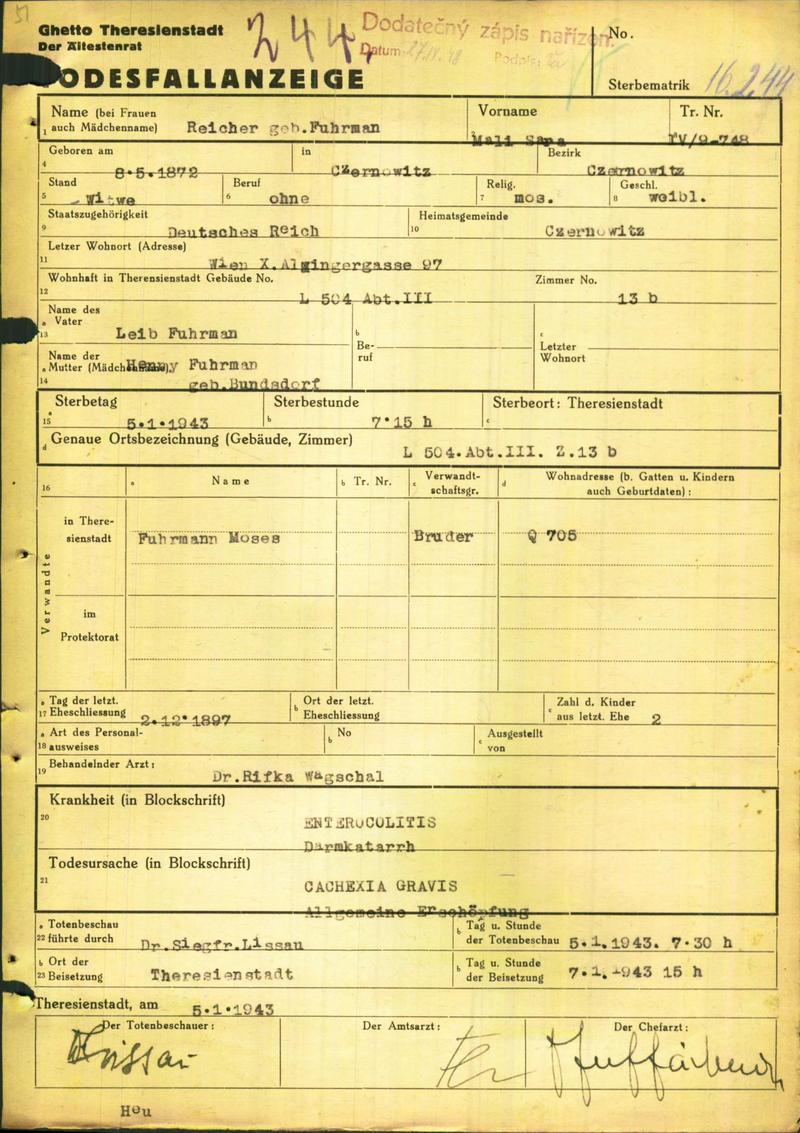 51
Ghetto Theresienstadt
Der Ältestenrat
244
Dodatečný zápis nařízen.
Datum
Podpis:
No.
TODESFALLANZEIGE
Sterbematrik 16244
Name (bei Frauen
1 auch Mädchenname) Reicher geb.Fuhrman
Vorname
Mali Sara
Tr. Nr.
IV/9-748
4 Geboren am 8.5.1872
in Czernowitz
Bezirk Czernowitz
5 Stand Witwe
6 Beruf ohne
7 Relig. mos.
8 Geschl. weibl.
9 Staatszugehörigkeit Deutsches Reich
10 Heimatsgemeinde Czernowitz
11 Letzer Wohnort (Adresse) Wien X.Alxingergasse 97
12 Wohnhaft in Theresienstadt Gebäude No. L 504 Abt.III
Zimmer No. 13 b
Name des
a Vater
13 Leib Fuhrman
b
Be-
ruf
c
Letzter
Wohnort
Name der
a Mutter (Mädchenname) Henny Fuhrman
14 geb.Bundsdorf
a Sterbetag
15 5.1.1943
b Sterbestunde 7.15 h
c Sterbeort: Theresienstadt
d Genaue Ortsbezeichnung (Gebäude, Zimmer)
L 504.Abt.III. Z.13 b
16
a Name
b Tr. Nr.
c Verwandt-
schaftsgr.
d Wohnadresse (b. Gatten u. Kindern
auch Geburtdaten) :
Verwandte
in There-
sienstadt Fuhrmann Moses Bruder Q 705
im
Protektorat
a Tag der letzt.
17 Eheschliessung 2.12.1897
b Ort der letzt.
Eheschliessung
c Zahl d. Kinder
aus letzt. Ehe 2
a Art des Personal-
18 ausweises
b No
c Ausgestellt
von
19 Behandelnder Arzt: Dr.Rifka Wagschal
Krankheit (in Blockschrift)
20 ENTEROCOLITIS
Darmkatarrh
Todesursache (in Blockschrift)
21 CACHEXIA GRAVIS
Allgemeine Erschöpfung
a Totenbeschau
22 führte durch Dr.Siegfr.Lissau
b Tag u. Stunde
der Totenbeschau 5.1.1943. 7.30 h
b Ort der
23 Beisetzung Theresienstadt
b Tag u. Stunde
der Beisetzung 7.1.1943 15 h
Theresienstadt, am 5.1.1943
Der Totenbeschauer:
Der Amtsarzt:
Der Chefarzt:
Lissau
Heu